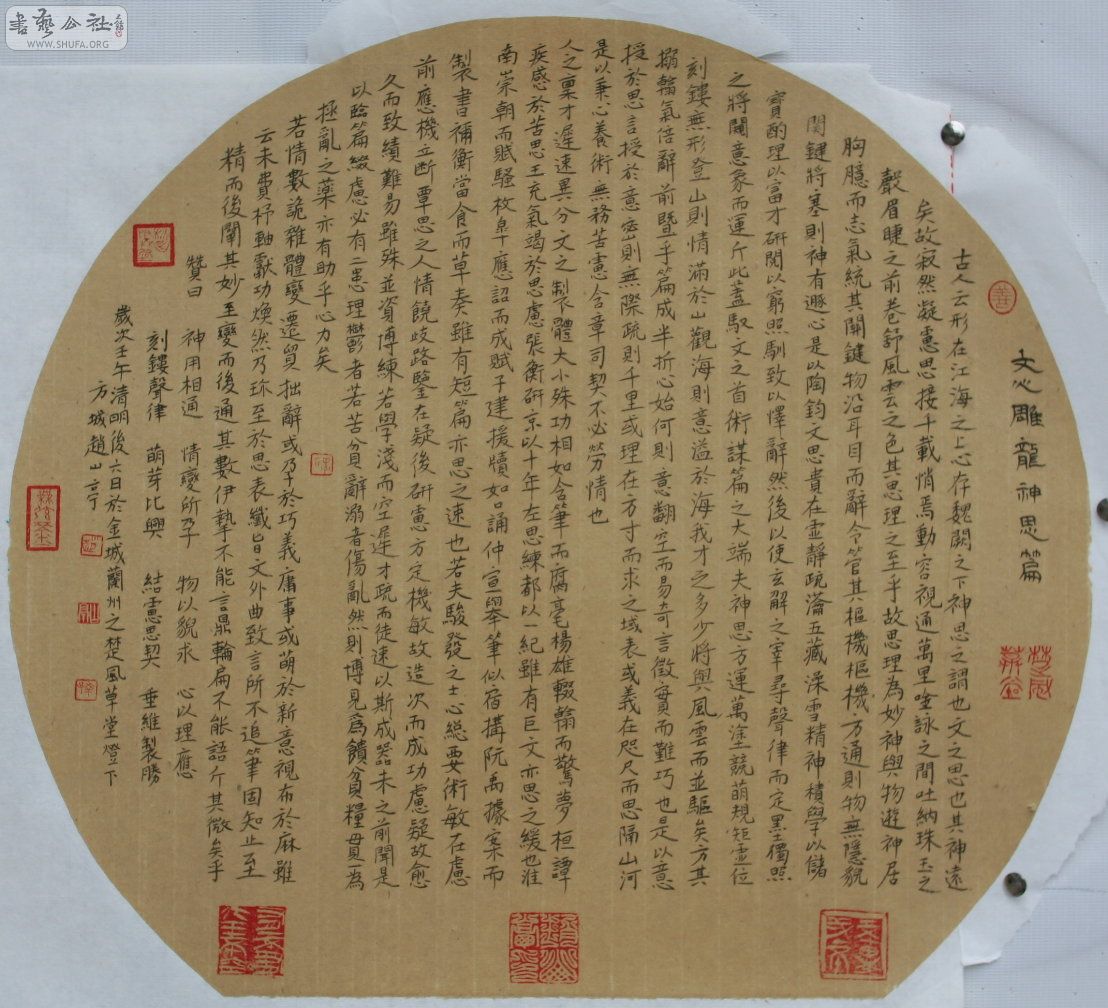 書藝公社
WWW.SHUFA.ORG
文心雕龍神思篇
古人云形在江海之上心存魏闕之下神思之謂也文之思也其神遠
矣故寂然凝慮思接千載悄焉動容視通萬里唫詠之間吐納珠玉之
聲眉睫之前卷舒風雲之色其思理之至乎故思理為妙神與物遊神居
胸臆而志氣統其關鍵物沿耳目而辭令管其樞機樞機方通則物無隱貌
関鍵將塞則神有遯心是以陶鈞文思貴在虛靜疏瀹五藏澡雪精神積學以儲
寶酌理以富才研閱以窮照馴致以懌辭然後以使玄解之宰尋聲律而定墨獨照
之將闚意象而運斤此蓋馭文之首術謀篇之大端夫神思方運萬塗競萌規矩虛位
刻鏤無形登山則情滿於山觀海則意溢於海我才之多少將與風雲而並驅矣方其
搦翰氣倍辭前暨乎篇成半折心始何則意翻空而易奇言徵實而難巧也是以意
授於思言授於意密則無際疏則千里或理在方寸而求之域表或義在咫尺而思隔山河
是以秉心養術無務苦慮含章司契不必勞情也
人之稟才遲速異分文之製體大小殊功相如含筆而腐毫楊雄輟翰而驚夢桓譚
疾感於苦思王充氣竭於思慮張衡研京以十年左思練都以一紀雖有巨文亦思之緩也淮
南崇朝而賦騷枚皐應詔而成賦子建援牘如口誦仲宣舉筆似宿搆阮禹據案而
製書禰衡當食而草奏雖有短篇亦思之速也若夫駿發之士心緫要術敏在慮
前應機立断覃思之人情饒歧路鑒在疑後研慮方定機敏故造次而成功慮疑故愈
久而致績難易雖殊並資博練若學淺而空遲才疏而徒速以斯成器未之前聞是
以臨篇綴慮必有二患理鬱者若苦貧辭溺者傷亂然則博見爲饋貧糧貫一為
拯亂之藥亦有助乎心力矣
若情數詭雜體變遷貿拙辭或孕於巧義庸事或萌於新意視布於麻雖
云未費杼軸獻功煥然乃珎至於思表纖旨文外曲致言所不追筆固知止至
精而後闡其妙至變而後通其數伊摯不能言鼎輪扁不能語斤其微矣乎
贊曰 神用相通 情變所孕 物以貌求 心以理應
刻鏤聲律 萌芽比興 結慮思契 垂維製勝
歲次壬午清明後六日於金城蘭州之楚風草堂燈下
方城趙山亭